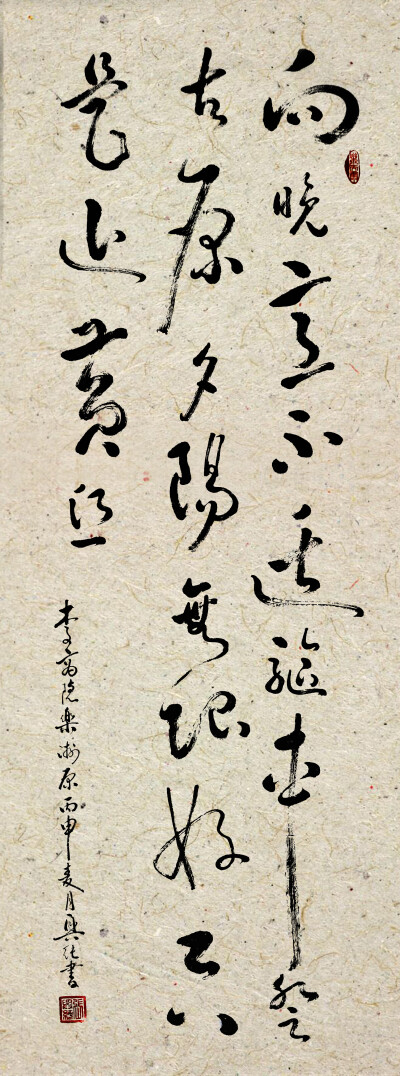 向晚意不適驅車登
古原夕陽無限好只
是近黄昏
李商隐樂游原丙申麦月興書